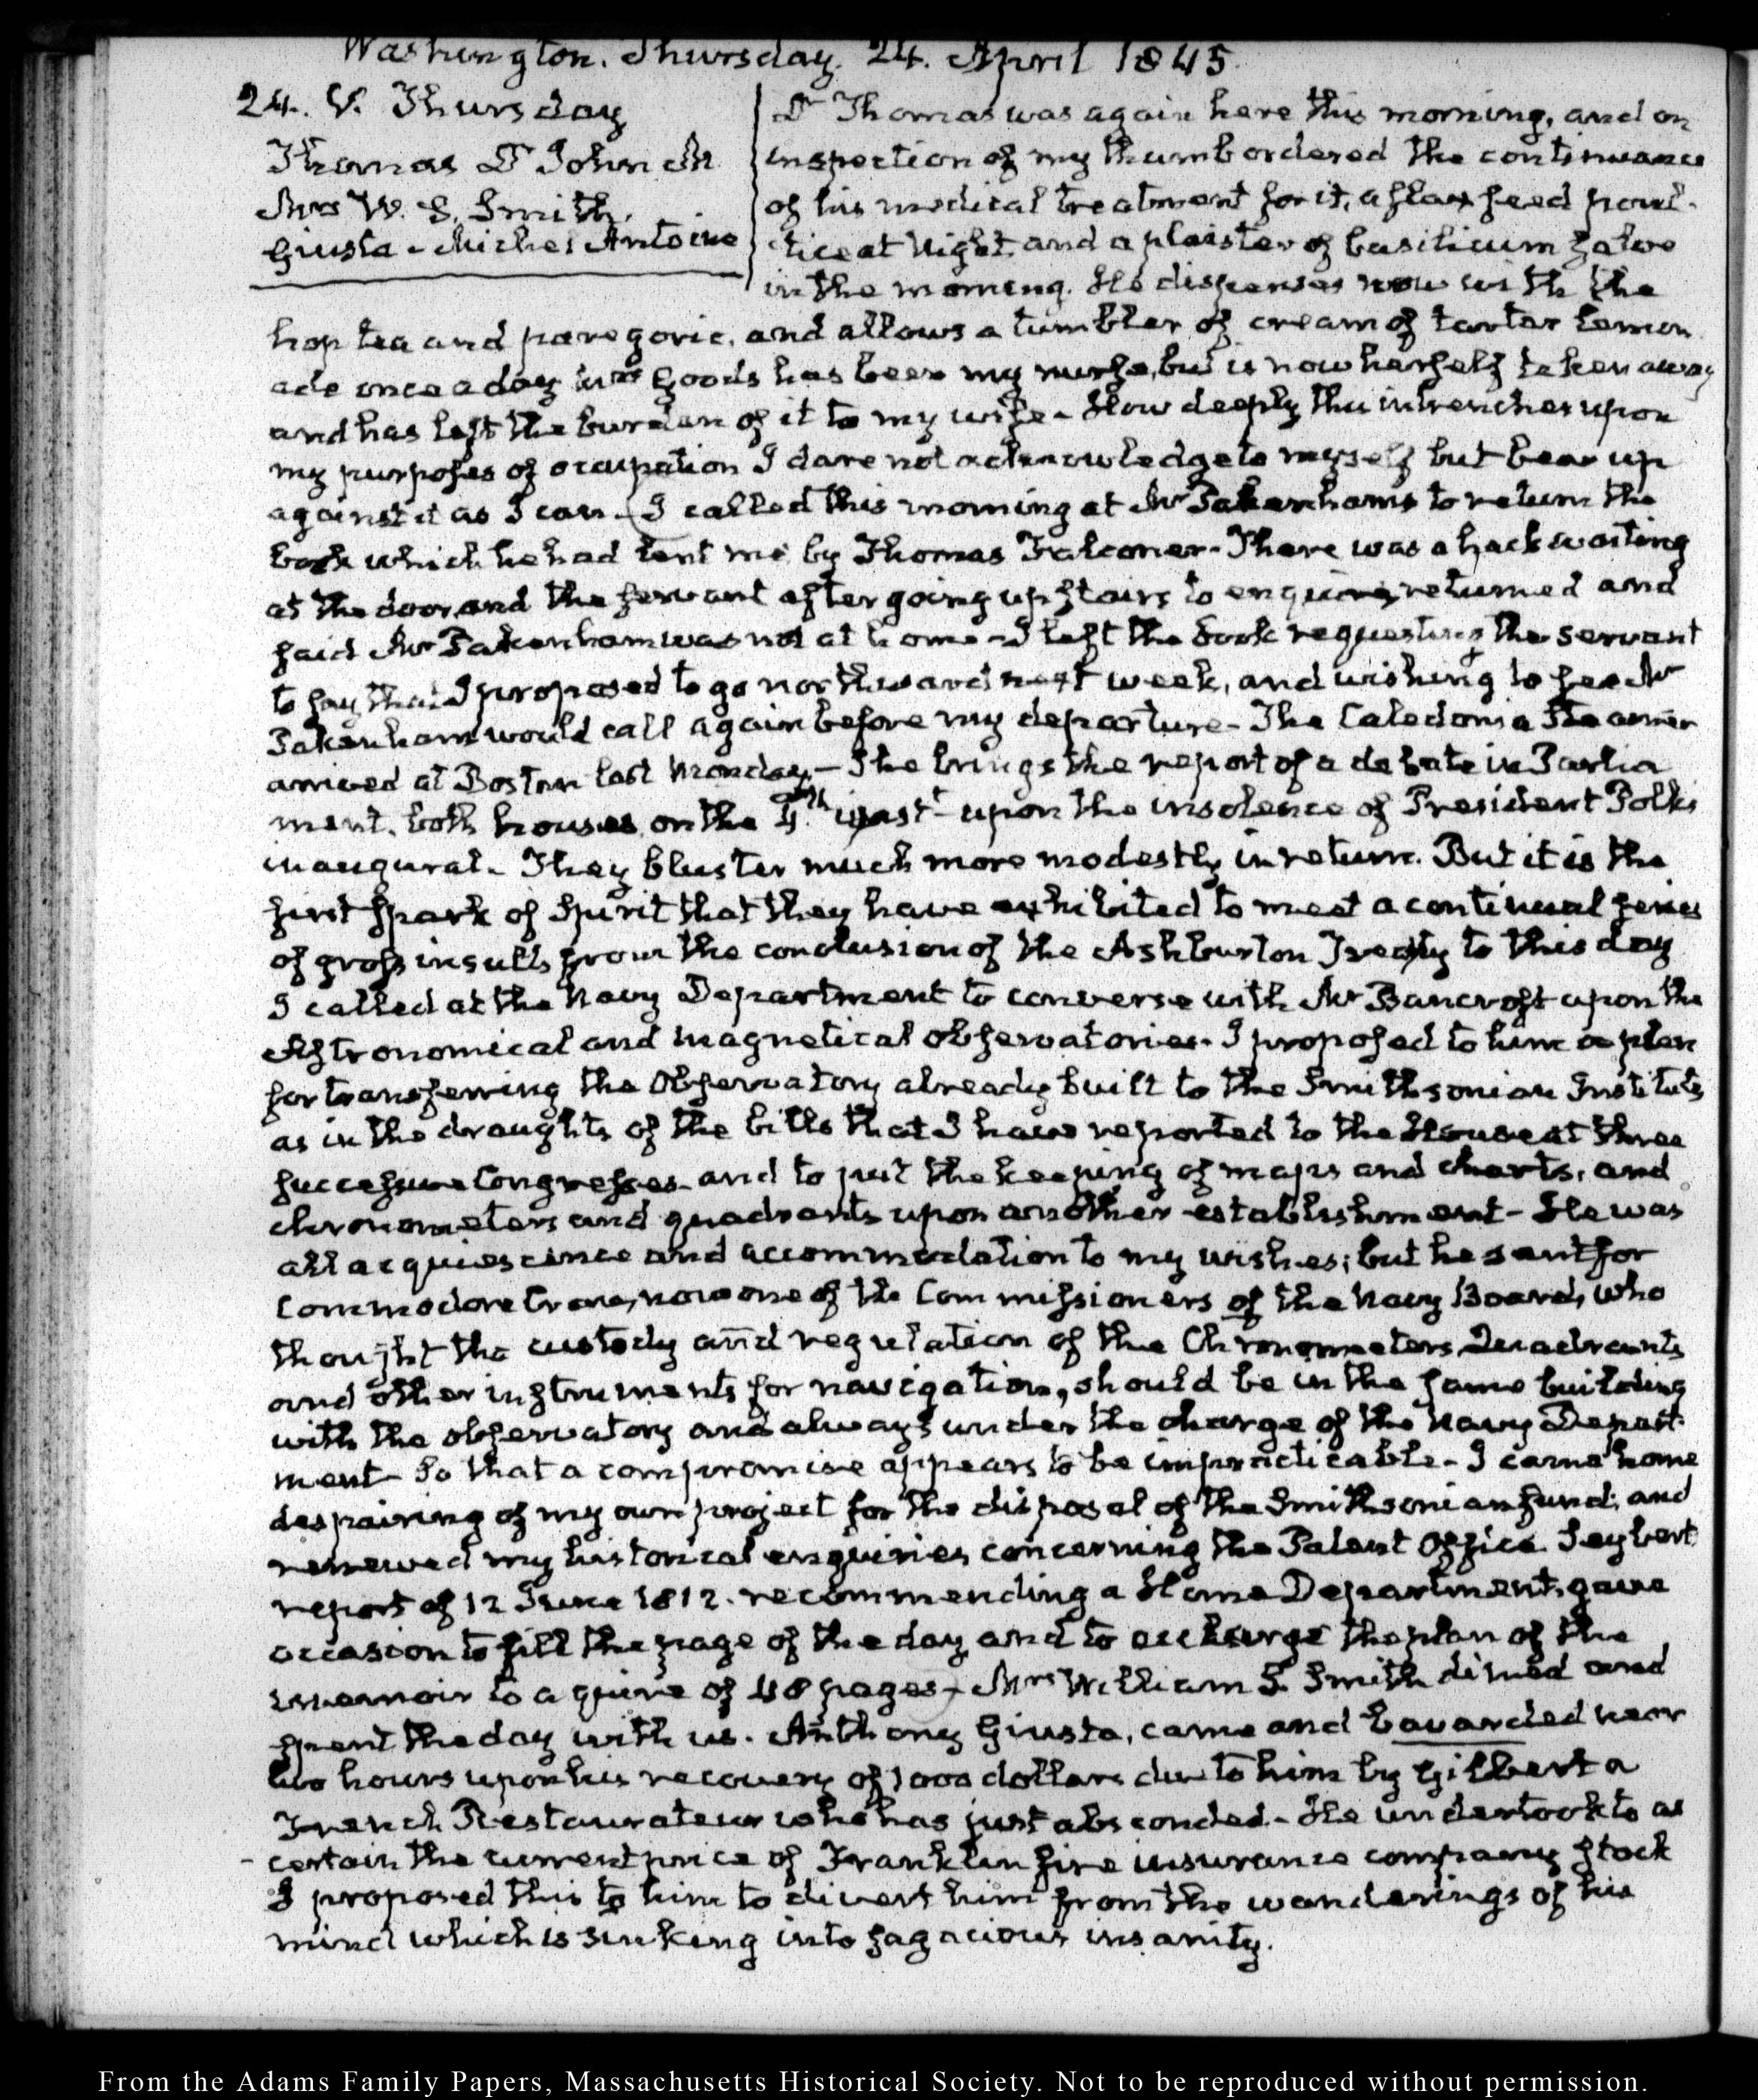 Washington. Thursday. 24. April 1845
24. V. Thursday
Thomas Dr John M
Mrs W. S. Smith.
Giusta - Michel Antoine
Dr Thomas was again here this morning, and on
inspection of my thumb ordered the continuance
of his medical treatment for it, a flax feed poul-
tice at Night and a plaister of basilicum
in the morning. He dispenses now with the
hop tea and paregoric, and allows a tumbler of cream of tartar lemon
ade once a day Mrs Goods has been my nurse, but is now herself taken away
and has left the burden of it to my wife - How deeply this intrenches upon
my purposes of occupation I dare not acknowledge to myself but bear up
against it as I can. I called this morning at Mr Pakenhams to return the
book which he had lent me by Thomas Falconer - There was a hack waiting
at the door and the servant after going up stairs to enquire returned and
said Mr Pakenham was not at home - I left the book requesting the servant
to say that I proposed to go northward next week, and wishing to see Mr
Pakenham would call again before my departure - The Caledonia Steamer
arrived at Boston last Monday - She brings the report of a debate in Parlia
ment, both houses, on the 4th inst upon the insolence of President Polk's
inaugural - They bluster much more modestly in return. But it is the
first spark of spirit that they have exhibited to meet a continual series
of gross insults from the conclusion of the Ashburton Treaty to this day
I called at the Navy Department to converse with Mr Bancroft upon the
Astronomical and magnetical observatories - I proposed to him a plan
for transferring the Observatory already built to the Smithsonian Institute
as in the draughts of the bills that I have reported to the House at three
successive Congresses - and to put the keeping of maps and charts, and
chronometers and quadrants upon another establishment - He was
all acquiescence and accommodation to my wishes; but he sent for
Commodore Crane, now one of the Commissioners of the Navy Board, who
thought the custody and regulation of the Chronometers Quadrants
and other instruments for navigation, should be in the same building
with the observatory and always under the charge of the Navy Depart-
ment - So that a compromise appears to be impracticable - I came home
despairing of my own project for the disposal of the Smithsonian fund; and
renewed my historical enquiries concerning the Patent Office Seybert
report of 12 June 1812. recommending a Home Department, gave
occasion to fill the page of the day and to enlarge the plan of the
memoir to a quire of 48 pages - Mrs William S. Smith dined and
spent the day with us. Anthony Giusta, came and bavarded near
two hours upon his recovery of 1000 dollars due to him by Gilbert a
French Restaurateur who has just absconded - He undertook to as
certain the current price of Franklin fire insurance company stock
I proposed this to him to divert him from the wanderings of his
mind which is sinking into sagacious insanity.
From the Adams Family Papers, Massachusetts Historical Society. Not to be reproduced without permission.